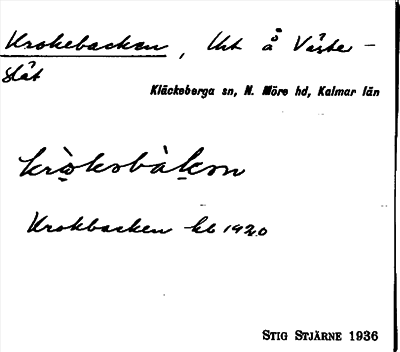 Krokebacken, Urt å Väster-
slät
Kläckeberga sn, N. Möre hd, Kalmar län
krò̤ksbàḵən
Krokbacken kb 1920
STIG STJÄRNE 1936